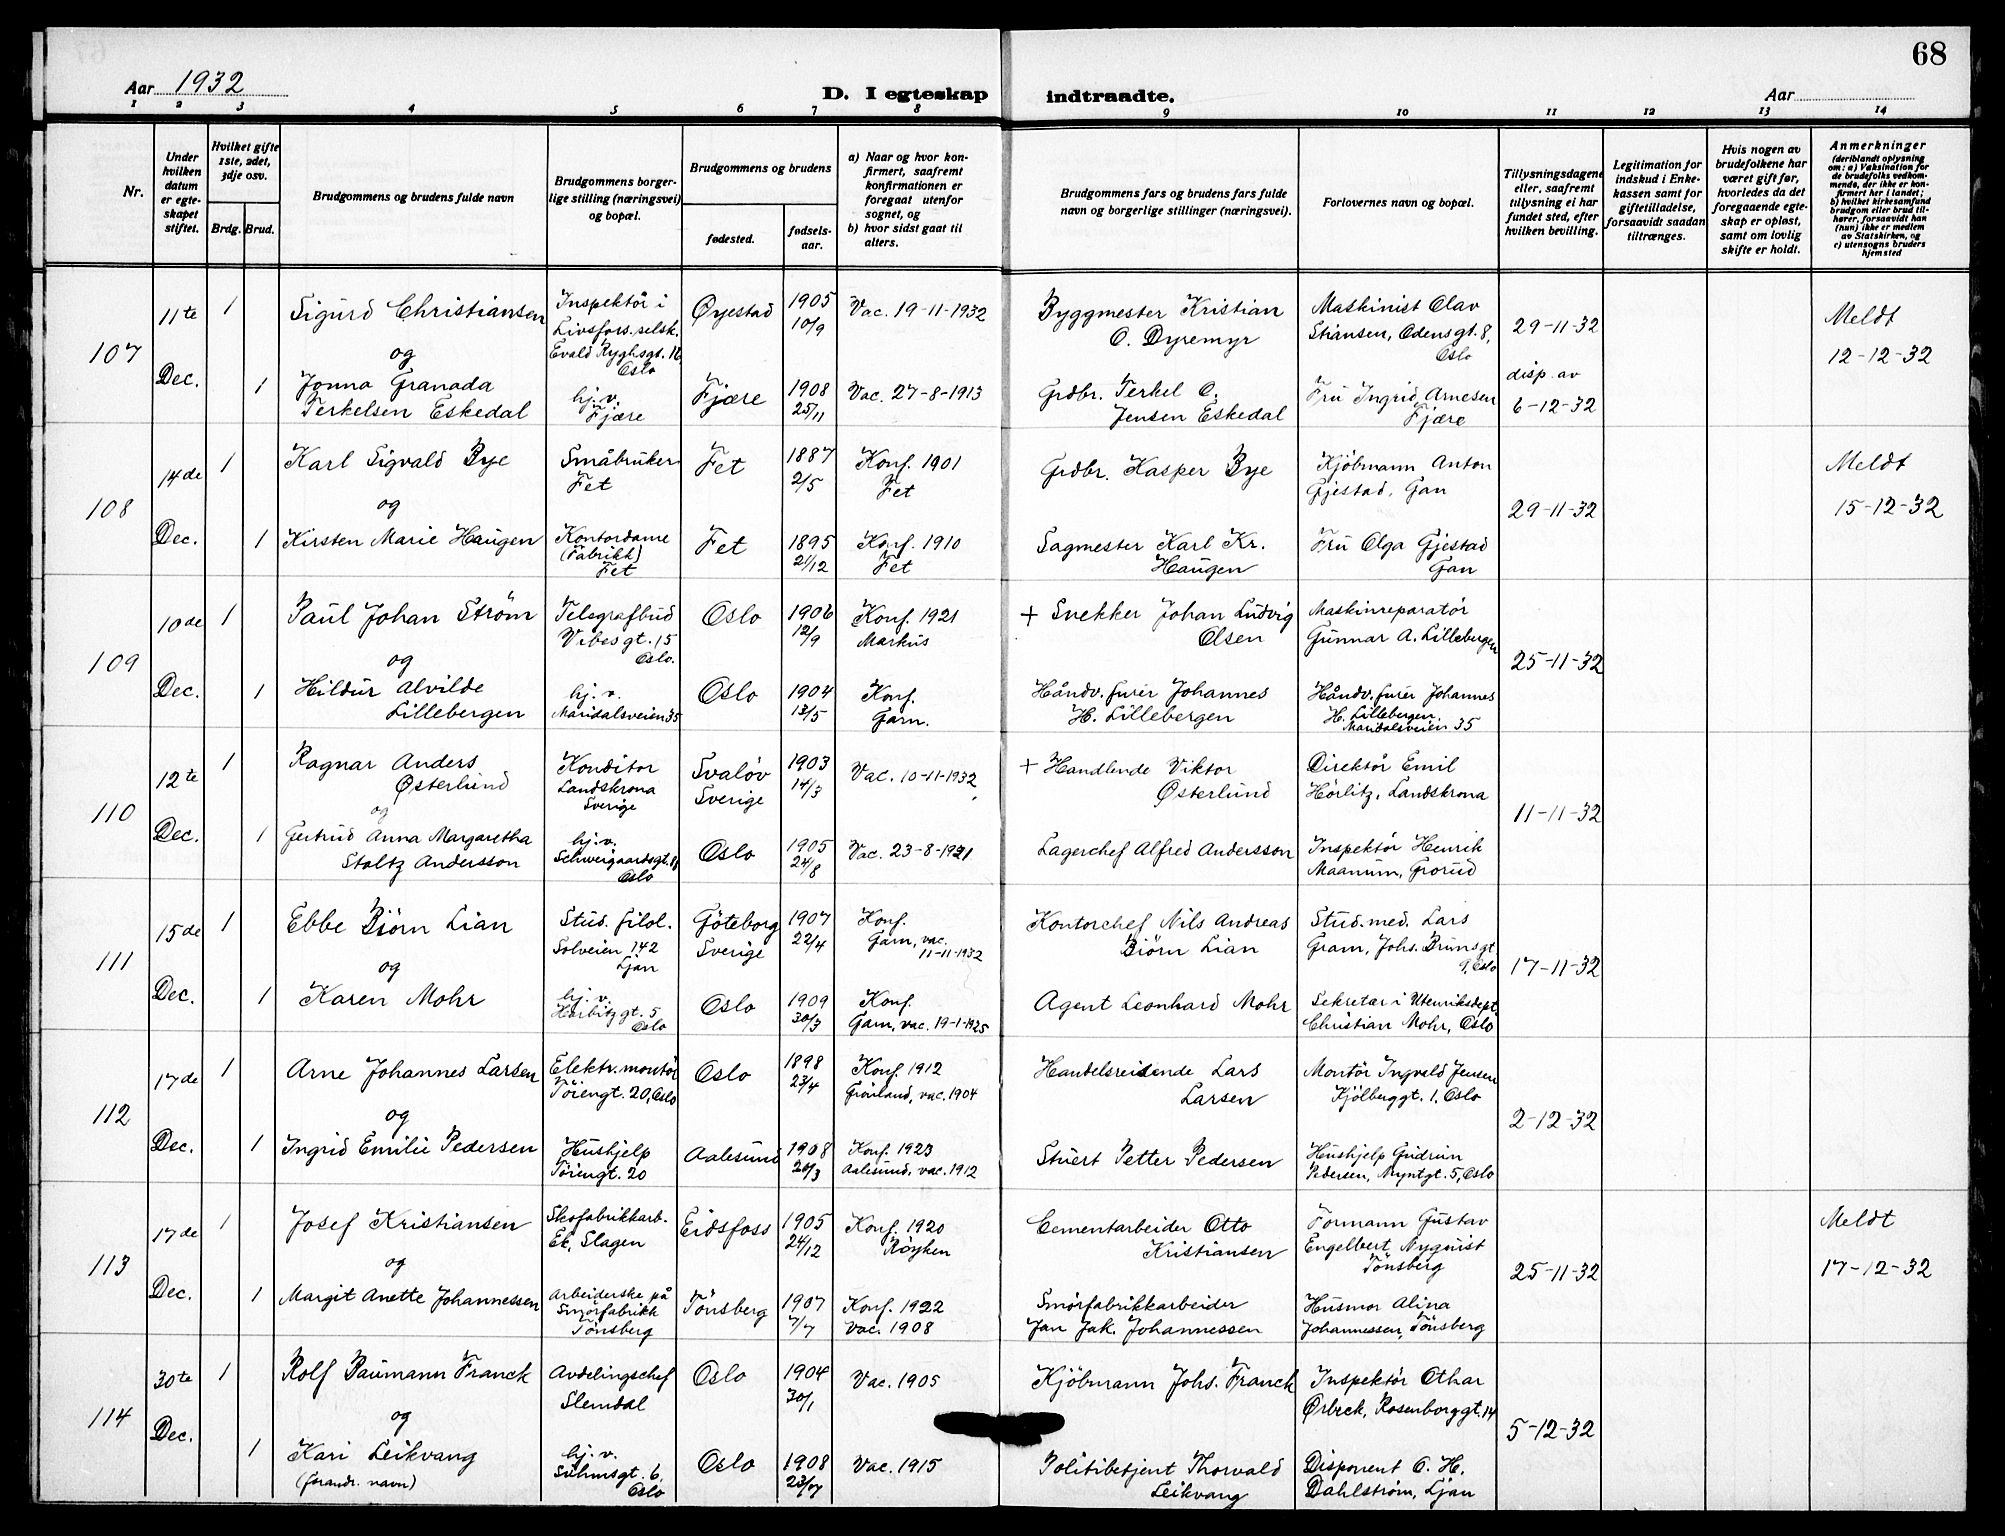 68
Aar 1932
D. I egteskap indtraadte.
Aar
1 2 3 4 5 6 7 8 9 10 11 12 13 14
Nr.
Under hvilken datum er egte-skapet stiftet.
Hvilket gifte 1ste, 2det, 3dje osv.
Brdg. Brud.
Brudgommens og brudens fulde navn
Brudgommens borger-lige stilling (næringsvei) og bopæl.
Brudgommens og brudens
fødested.
fødsels-aar.
a) Naar og hvor kon-firmert, saafremt konfirmationen er foregaat utenfor sognet, og
b) hvor sidst gaat til alters.
Brudgommens fars og brudens fars fulde navn og borgerlige stillinger (næringsvei).
Forlovernes navn og bopæl.
Tillysningsdagene eller, saafremt tillysning ei har fundet sted, efter hvilken bevilling.
Legitimation for indskud i Enke-kassen samt for giftetilladelse, forsaavidt saadan tiltrænges.
Hvis nogen av brudefolkene har været gift før, hvorledes da det foregaaende egte-skap er opløst, samt om lovlig skifte er holdt.
Anmerkninger
(deriblandt oplysning om: a) Vaksination for de brudefolks vedkom-mende, der ikke er kon-firmert her i landet; b) hvilket kirkesamfund brudgom eller brud til-hører, forsaavidt han (hun) ikke er medlem av Statskirken, og c) utensogns bruders hjemsted
107
11te Dec.
1 Sigurd Christiansen
Inspektör i Livsfors.selsk. Evald Ryghsgt. 16 Oslo
Øyestad
1905 10/9
Vac. 19-11-1932
Byggmester Kristian O. Dyremyr
Maskinist Olav Stiansen, Odensgt. 8, Oslo
29-11-32
disp. av 6-12-32
Meldt 12-12-32
og
1 Jonna Granada Terkelsen Eskedal
hj. v. Fjære
Fjære
1908 25/11
Vac. 27-8-1913
Grdbr. Terkel O. Jensen Eskedal
Fru Ingrid Arnesen Fjære
108
14de Dec.
1 Karl Sigvald Bye
Småbruker Fet
Fet
1887 2/5
Konf. 1901 Fet
Grdbr. Kasper Bye
Kjöbmann Anton Gjestad, Gan
29-11-32
Meldt 15-12-32
og
1 Kirsten Marie Haugen
Kontordame (Fabrikk) Fet
Fet
1895 21/12
Konf. 1910 Fet
Sagmester Karl Kr. Haugen
Fru Olga Gjestad Gan
109
10de Dec.
1 Paul Johan Ström
Telegrafbud Vibesgt. 15 Oslo.
Oslo
1906 12/9
Konf. 1921 Markus
+ Snekker Johan Ludvig Olsen
Maskinreparatör Gunnar A. Lillebergen
25-11-32
og
1 Hildur Alvilde Lillebergen
hj. v. Maridalsveien 35
Oslo
1904 13/5
Konf. Garn.
Håndv. furér Johannes H. Lillebergen
Håndv. furér Johannes H. Lillebergen, Maridalsveien 35
110
12te Dec.
1 Ragnar Anders Østerlund
Konditor Landskrona Sverige
Svalöv Sverige
1903 14/3
Vac. 10-11-1932
+ Handlende Viktor Østerlund
Direktör Emil Hörlitz, Landskrona
11-11-32
og
1 Gertrud Anna Margaretha Stoltz Andersson
hj. v. Schweigaardsgt. Oslo
Oslo
1905 24/8
Vac. 23-8-1921
Lagerchef Alfred Andersson
Inspektör Henrik Maanum, Grorud
111
15de Dec.
1 Ebbe Biörn Lian
Stud. filol. Solveien 142 Ljan
Göteborg Sverige
1907 22/4
Konf. Garn, vac. 11-11-1932
Kontorchef Nils Andreas Biörn Lian
Stud. med. Lars Gram, Johs. Brunsgt 9, Oslo
17-11-32
og
1 Karen Mohr
hj. v. Harbitzgt. 5 Oslo
Oslo
1909 30/3
Konf. Garn, vac. 19-1-1925
Agent Leonhard Mohr
Sekretær i Utenriksdept. Christian Mohr, Oslo
112
17de Dec.
1 Arne Johannes Larsen
Elektr. montör Töiengt. 20, Oslo
Oslo
1898 23/4
Konf. 1912 Grönland, vac. 1904
Handelsreisende Lars Larsen
Montör Ingvald Jensen Kjölberggt. 1, Oslo
2-12-32
og
1 Ingrid Emilie Pedersen
Hushjelp Töiengt. 20
Aalesund
1908 20/3
Konf. 1923 Aalesund, vac. 1912
Stuert Petter Pedersen
Hushjelp Gudrun Pedersen, Myntgt. 5, Oslo
113
17de Dec.
1 Josef Kristiansen
Skofabrikkarb. Ek, Slagen
Eidsfoss
1905 24/12
Konf. 1920 Röyken
Cementarbeider Otto Kristiansen
Formann Gustav Engelbert Nyquist Tönsberg
25-11-32
Meldt 17-12-32
og
1 Margit Anette Johannessen
Arbeiderske på Smörfabrikk Tönsberg
Tönsberg
1907 7/7
Konf. 1922 vac. 1908
Smörfabrikkarbeider Jan Jak. Johannessen
Husmor Alina Johannessen, Tönsberg
114
30te Dec.
1 Rolf Paumann Franck
Avdelingschef Slemdal
Oslo
1904 30/1
Vac. 1905
Kjöbmann Johs. Franck
Inspektör Othar Ørbeck, Rosenborggt. 14
5-12-32
og
1 Kari Leikvang (forandr. navn)
hj. v. Suhmsgt. 6, Oslo
Oslo
1908
Vac. 1915
Politibetjent Thorvald Leikvang
Disponent O. H. Dahlström, Ljan